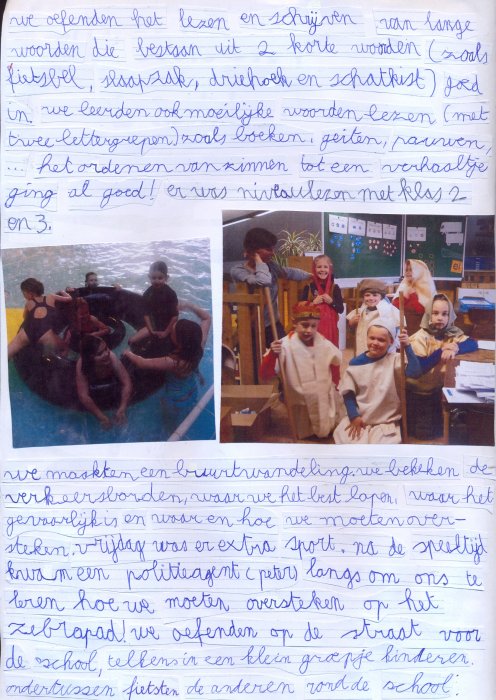 we oefenden het lezen en schrijven van lange
woorden die bestaan uit 2 korte woorden (zoals
fietsbel, slaapzak, driehoek en schatkist) goed
in. we leerden ook moeilijke woorden lezen (met
twee lettergrepen) zoals boeken, geiten, pauwen,
... het ordenen van zinnen tot een verhaaltje
ging al goed! er was niveaulezen met klas 2
en 3.
we maakten een buurtwandeling. we bekeken de
verkeersborden, waar we het best lopen, waar het
gevaarlijk is en waar en hoe we moeten over-
steken. vrijdag was er extra sport. na de speeltijd
kwam een politieagent (peter) langs om ons te
leren hoe we moeten oversteken op het
zebrapad! we oefenden op de straat voor
de school, telkens in een klein groepje kinderen.
ondertussen fietsten de anderen rond de school